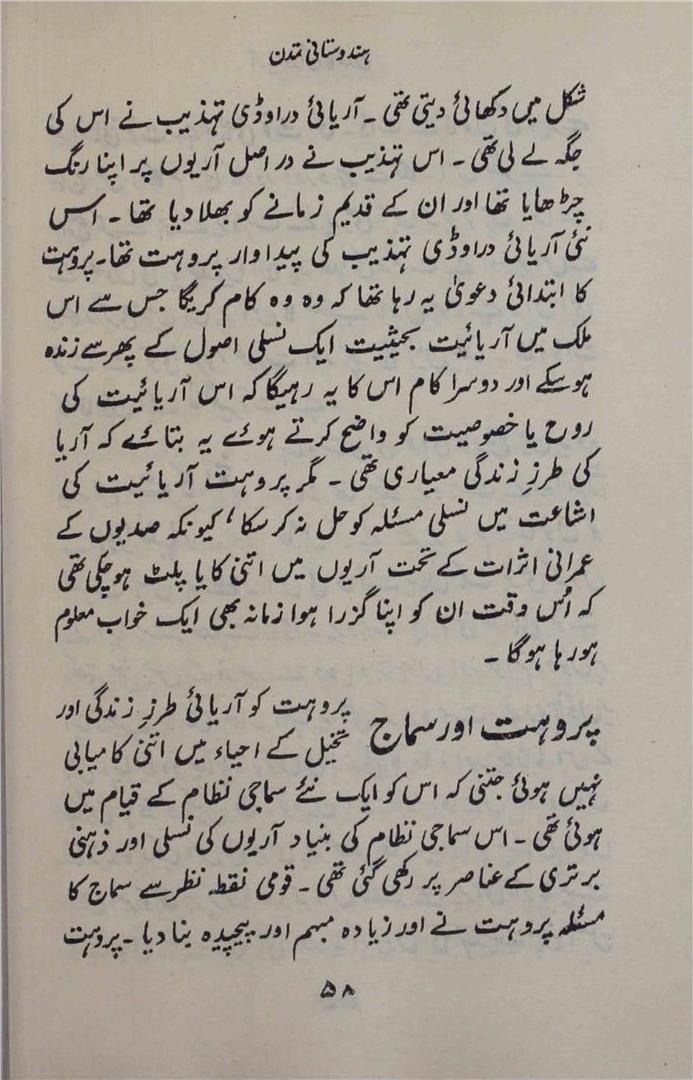 ہندوستانی تمدن
شکل میں دکھائی دیتی تھی ۔ آریائی دراوڈی تہذیب نے اس کی
جگہ لے لی تھی ۔ اس تہذیب نے در اصل آریوں پر اپنا رنگ
چڑھایا تھا اور ان کے قدیم زمانے کو بھلا دیا تھا ۔ اس
نئی آریائی دراوڈی تہذیب کی پیداوار پروہت تھا۔ پروہت
کا ابتدائی دعویٰ یہ رہا تھا کہ وہ وہ کام کریگا جس سے اس
ملک میں آریائیت بحیثیت ایک نسلی اصول کے پھر سے زندہ
ہوسکے اور دوسرا کام اس کا یہ رہیگا کہ اس آریائیت کی
روح یا خصوصیت کو واضح کرتے ہوئے یہ بتائے کہ آریا
کی طرزِ زندگی معیاری تھی ۔ مگر پروہت آریائیت کی
اشاعت میں نسلی مسئلہ کو حل نہ کر سکا ، کیونکہ صدیوں کے
عمرانی اثرات کے تحت آریوں میں اتنی کایا پلٹ ہوچکی تھی
کہ اُس وقت ان کو اپنا گزرا ہوا زمانہ بھی ایک خواب معلوم
ہورہا ہوگا ۔
پروہت اور سماج پروہت کو آریائی طرزِ زندگی اور
تخیل کے احیاء میں اتنی کامیابی
نہیں ہوئی جتنی کہ اس کو ایک نئے سماجی نظام کے قیام میں
ہوئی تھی ۔ اس سماجی نظام کی بنیاد آریوں کی نسلی اور ذہنی
برتری کے عناصر پر رکھی گئی تھی ۔ قومی نقطہ نظر سے سماج کا
مسئلہ پروہت نے اور زیادہ مبہم اور پیچیدہ بنا دیا ۔ پروہت
۵۸